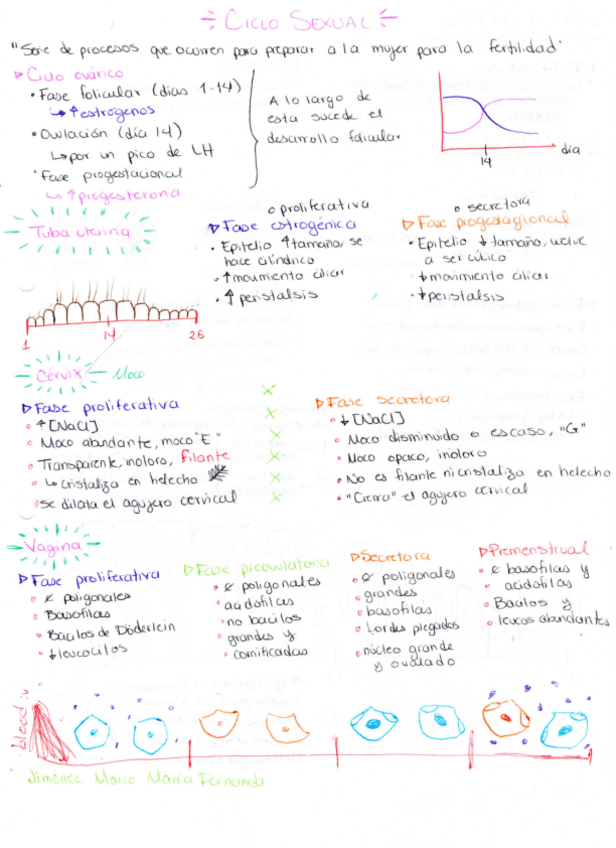 Ciclo Sexual
"Serie de procesos que ocurren para preparar a la mujer para la fertilidad"
▷ Ciclo ovárico
• Fase folicular (días 1-14)
↳ ↑ estrógenos
• Ovulación (día 14)
↳ por un pico de LH
• Fase progestacional
↳ ↑ progesterona
A lo largo de
esta sucede el
desarrollo folicular
14
día
Tuba uterina
1
14
28
o proliferativa
▷ Fase estrogénica
• Epitelio ↑ tamaño, se
hace cilíndrico
• ↑ movimiento ciliar
• ↑ peristalsis
o secretora
▷ Fase progestagional
• Epitelio ↓ tamaño, vuelve
a ser cúbico
• ↓ movimiento ciliar
• ↓ peristalsis
Cérvix - Moco
▷ Fase proliferativa
• ↑ [NaCl]
• Moco abundante, moco "E"
• Transparente, inoloro, filante
• ↳ cristaliza en helecho
• se dilata el agujero cervical
▷ Fase secretora
• ↓ [NaCl]
• Moco disminuido o escaso, "G"
• Moco opaco, inoloro
• No es filante ni cristaliza en helecho
• "Cierra" el agujero cervical
Vagina
▷ Fase proliferativa
• poligonales
• Basófilas
• Bacilos de Döderlein
• ↓ leucocitos
▷ Fase preovulatoria
• poligonales
• acidófilas
• no bacilos
• grandes y
• cornificadas
▷ Secretora
• poligonales
• grandes
• basófilas
• bordes plegados
• núcleo grande
y ovalado
▷ Premenstrual
• basófilas y
• acidófilas
• Bacilos y
• leucos abundantes
blood
Jiménez Marco María Fernanda